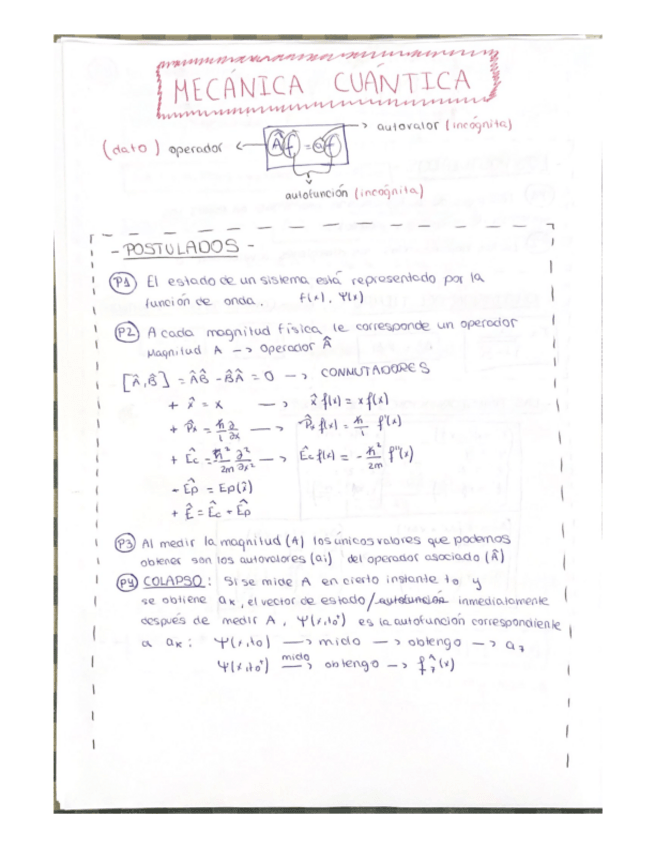 MECÁNICA CUÁNTICA
(dato) operador ← Âf = af → autovalor (incógnita)
autofunción (incógnita)
- POSTULADOS -
P1 El estado de un sistema está representado por la
función de onda. f(x), Ψ(x)
P2 A cada magnitud física le corresponde un operador
Magnitud A --> operador Â
[Â,B̂] = ÂB̂ - B̂Â = 0 --> CONMUTADORES
+ x̂ = x --> x̂ f(x) = x f(x)
+ P̂x = ħ/i ∂/∂x --> P̂x f(x) = ħ/i f'(x)
+ Êc = -ħ²/2m ∂²/∂x² --> Êc f(x) = - ħ²/2m f''(x)
- Êp = Ep(x̂)
+ Ê = Êc + Êp
P3 Al medir la magnitud (A) los únicos valores que podemos
obtener son los autovalores (ai) del operador asociado (Â)
P4 COLAPSO: Si se mide A en cierto instante to y
se obtiene ak, el vector de estado/autofunción inmediatamente
después de medir A, Ψ(x,to⁺) es la autofunción correspondiente
a ak: Ψ(x,to) --> mido --> obtengo --> a7
Ψ(x,to⁺) mido --> obtengo --> f7^Â(x)